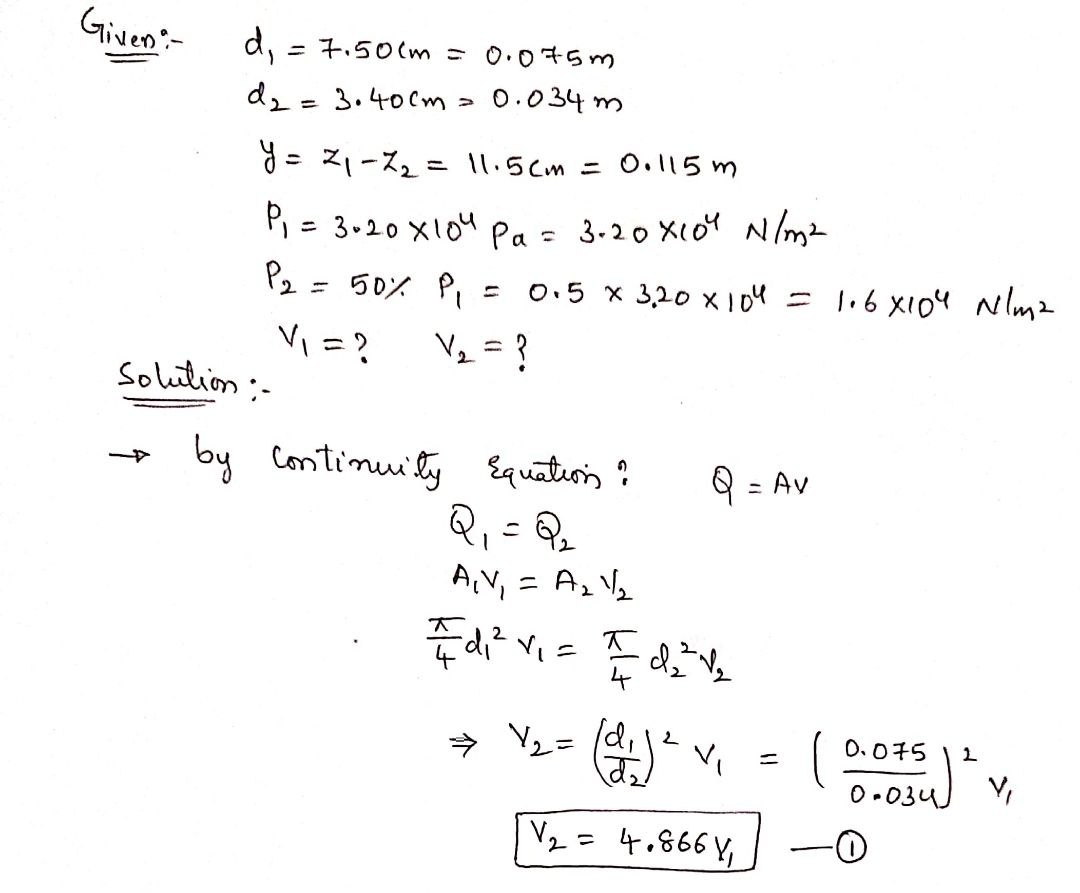 Given:-
d₁ = 7.50cm = 0.075m
d₂ = 3.40cm = 0.034m
y = z₁-z₂ = 11.5cm = 0.115 m
P₁ = 3.20 ×10⁴ Pa = 3.20 ×10⁴ N/m²
P₂ = 50% P₁ = 0.5 × 3.20 × 10⁴ = 1.6 ×10⁴ N/m²
V₁ = ? V₂ = ?
Solution :-
→ by Continuity Equation : Q = AV
Q₁ = Q₂
A₁V₁ = A₂ V₂
π/4 d₁² V₁ = π/4 d₂² V₂
⇒ V₂ = (d₁/d₂)² V₁ = (0.075/0.034)² V₁
V₂ = 4.866 V₁ —①